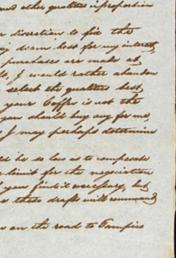 and other qualities in proportion
direction to fix the
seem best for my interest
purchases are made at
I would rather abandon
select the qualities best
your Coffee is not the
you should buy any for me,
I may perhaps determine
be so loss as to compensate
limit for the negotiation
if you find it necessary, but
these drafts will command
on the road to Tampico